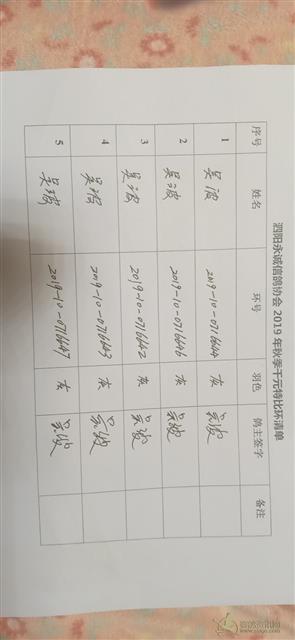 泗阳永诚信鸽协会 2019 年秋季千元特比环清单
序号 姓名 环号 羽色 鸽主签字 备注
1 吴波 2019-10-0716644 灰 吴波
2 吴波 2019-10-0716646 灰 吴波
3 吴波 2019-10-0716642 灰 吴波
4 吴波 2019-10-0716643 灰 吴波
5 吴波 2019-10-0716647 灰 吴波